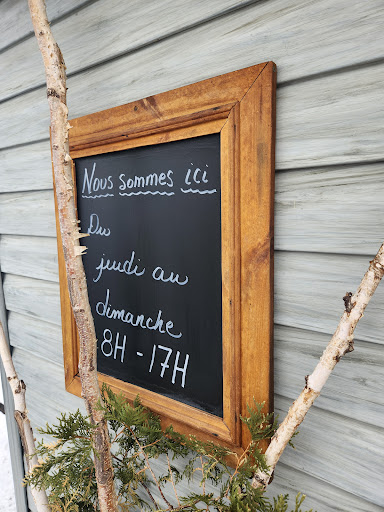 Nous sommes ici
Du
jeudi au
dimanche
8H - 17H